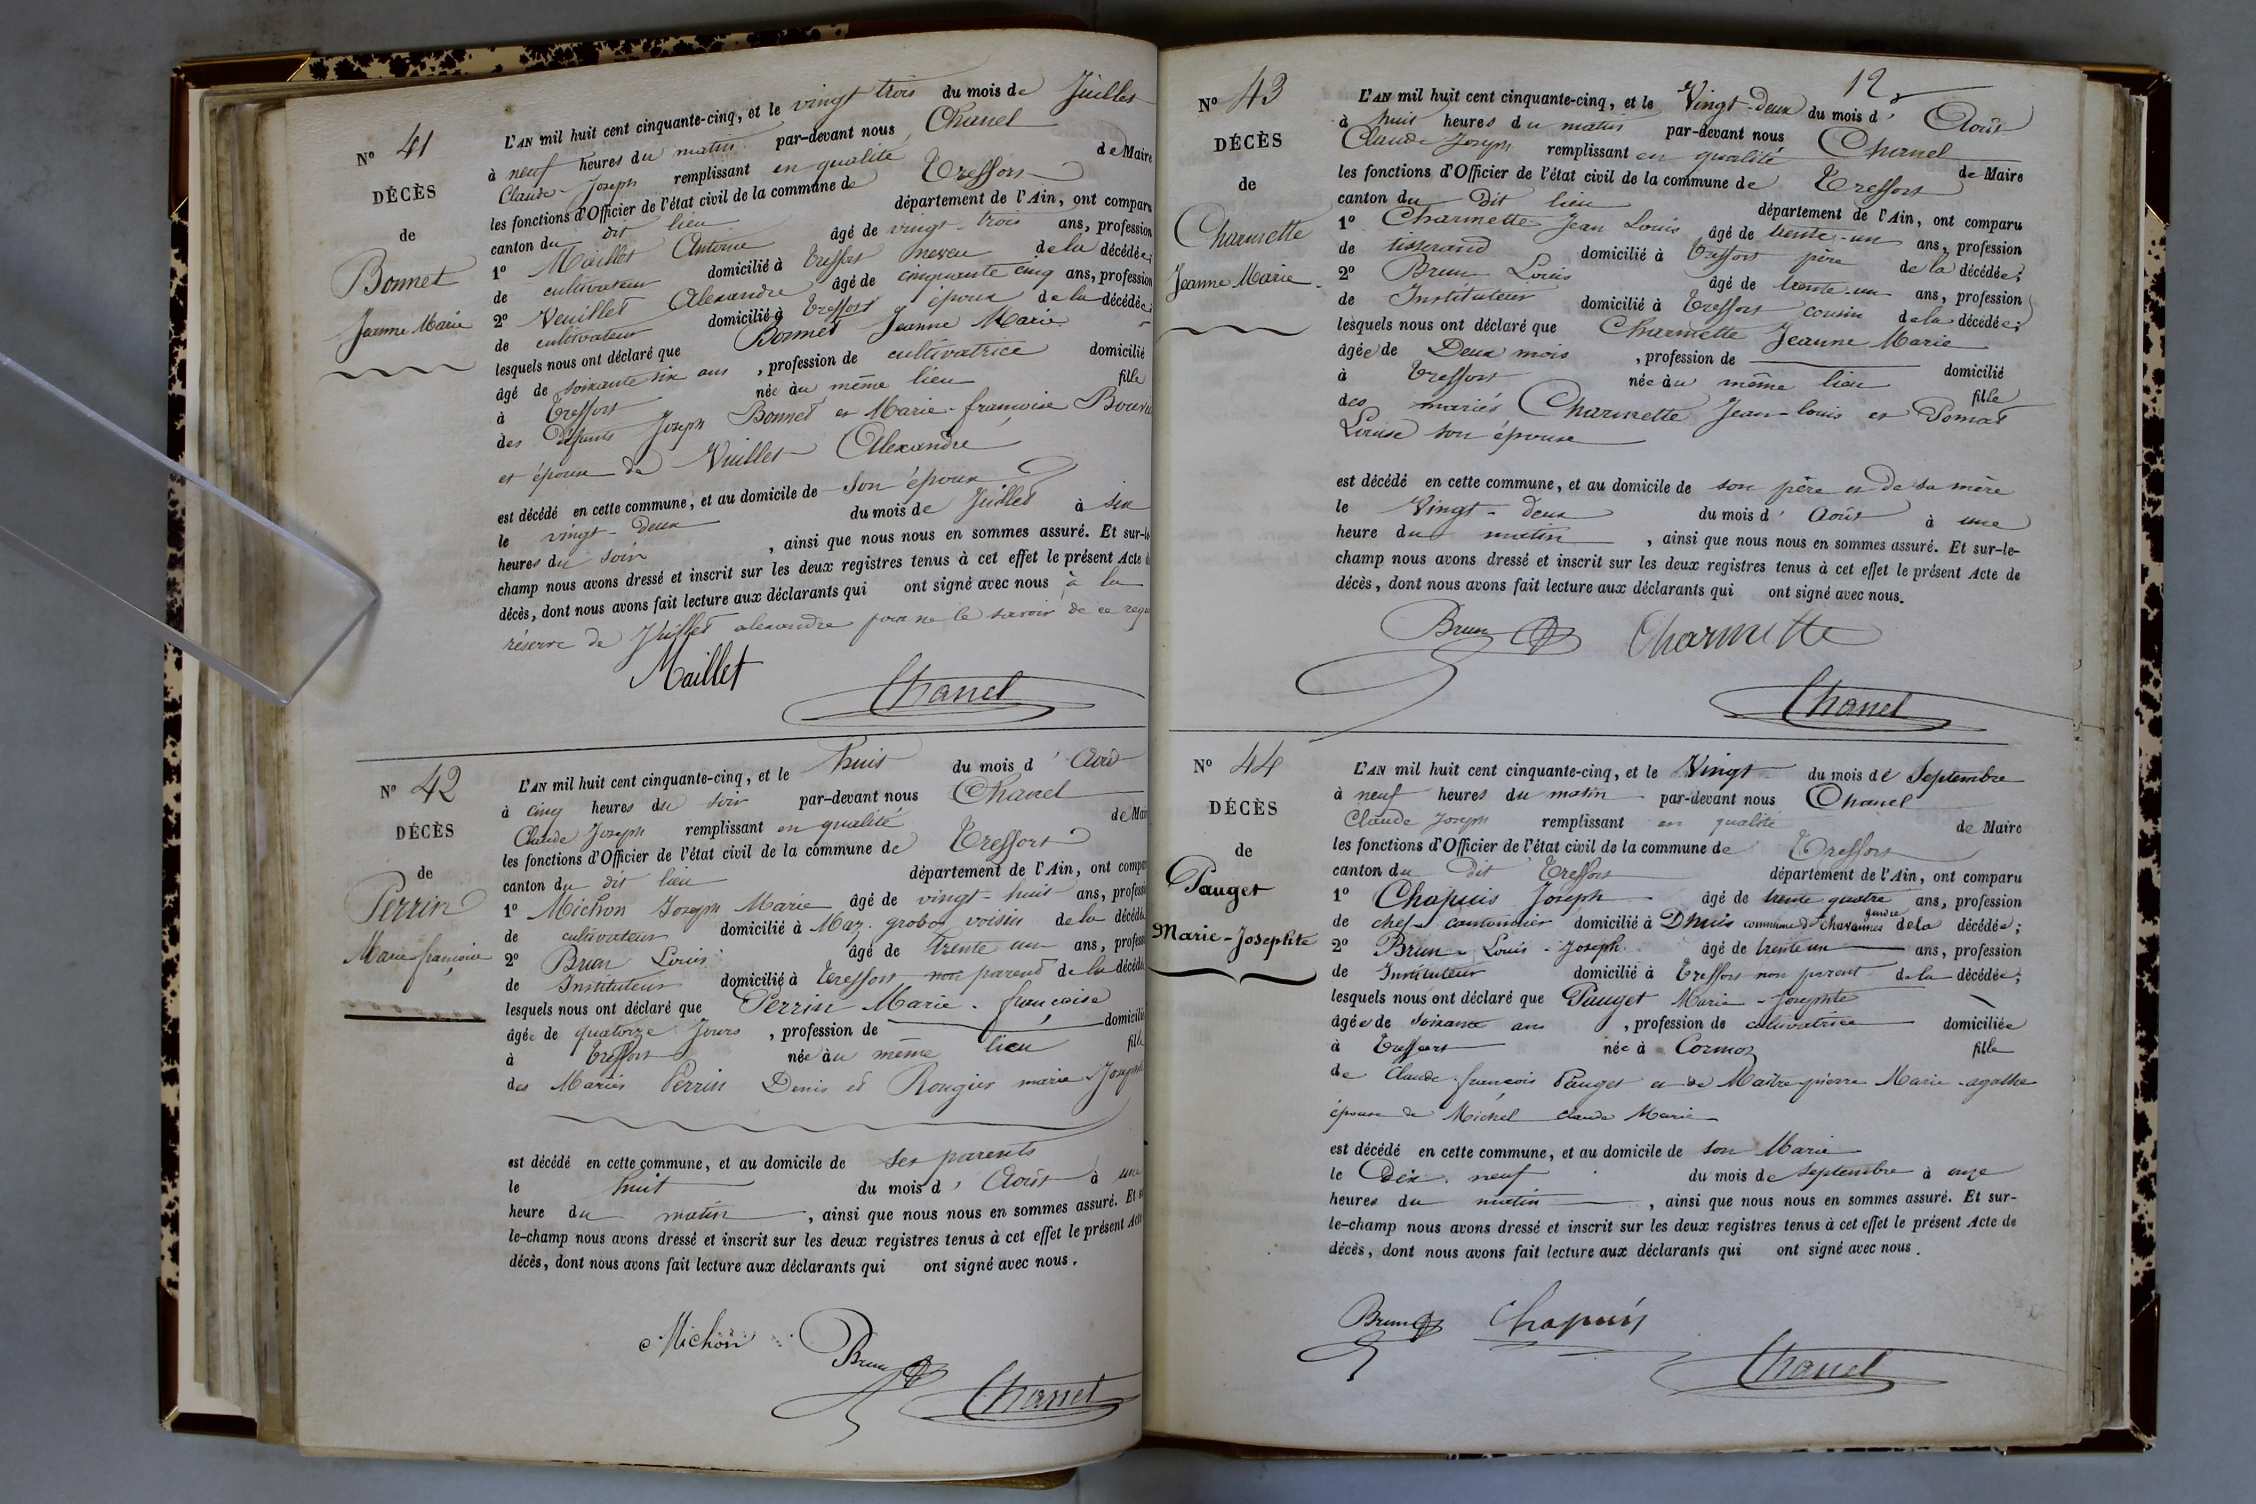 N° 41
DÉCÈS
de
Bonnet
Jeanne Marie
L'AN mil huit cent cinquante-cinq, et le vingt trois du mois de Juillet
à neuf heures du matin par-devant nous Chanel
Claude-Joseph remplissant en qualité de Maire
les fonctions d'Officier de l'état civil de la commune de Treffort
canton du dit lieu département de l'Ain, ont comparu
1° Maillet Antoine âgé de vingt-trois ans, profession
de cultivateur domicilié à Treffort neveu de la décédée;
2° Veuillet Alexandre âgé de cinquante cinq ans, profession
de cultivateur domicilié à Treffort époux de la décédée;
lesquels nous ont déclaré que Bonnet Jeanne Marie
âgé de soixante six ans, profession de cultivatrice domicilié
à Treffort née au même lieu fille
des défunts Joseph Bonnet et Marie-françoise
et époux de Vuillet Alexandre
est décédé en cette commune, et au domicile de son époux
le vingt-deux du mois de Juillet à six
heures du soir, ainsi que nous nous en sommes assuré. Et sur-le-
champ nous avons dressé et inscrit sur les deux registres tenus à cet effet le présent Acte de
décès, dont nous avons fait lecture aux déclarants qui ont signé avec nous à la
réserve de Vuillet alexandre pour ne le savoir de ce requis
Maillet
Chanel
N° 42
DÉCÈS
de
Perrin
Marie françoise
L'AN mil huit cent cinquante-cinq, et le huit du mois d'Août
à cinq heures du soir par-devant nous Chanel
Claude Joseph remplissant en qualité de Maire
les fonctions d'Officier de l'état civil de la commune de Treffort
canton du dit lieu département de l'Ain, ont comparu
1° Michon Joseph Marie âgé de vingt-huit ans, profession
de cultivateur domicilié à Maz-groboz voisin de la décédée
2° Brun Louis âgé de trente un ans, profession
de Instituteur domicilié à Treffort non parent de la décédée
lesquels nous ont déclaré que Perrin Marie-françoise
âgée de quatorze Jours, profession de domicilié
à Treffort née au même lieu fille
des Mariés Perrin Denis et Rougier marie Josephte
est décédé en cette commune, et au domicile de ses parents
le huit du mois d'Août à une
heure du matin, ainsi que nous nous en sommes assuré. Et sur-
le-champ nous avons dressé et inscrit sur les deux registres tenus à cet effet le présent Acte
décès, dont nous avons fait lecture aux déclarants qui ont signé avec nous.
Michon
Brun
Chanel
12
N° 43
DÉCÈS
de
Charmette
Jeanne Marie
L'AN mil huit cent cinquante-cinq, et le Vingt-deux du mois d'Août
à huit heures du matin par-devant nous Chanel
Claude Joseph remplissant en qualité de Maire
les fonctions d'Officier de l'état civil de la commune de Treffort
canton du dit lieu département de l'Ain, ont comparu
1° Charmette Jean Louis âgé de trente-un ans, profession
de tisserand domicilié à Treffort père de la décédée;
2° Brun Louis âgé de trente-un ans, profession
de Instituteur domicilié à Treffort cousin de la décédée;
lesquels nous ont déclaré que Charmette Jeanne Marie
âgée de Deux mois, profession de domicilié
à Treffort née au même lieu fille
des mariés Charmette Jean-louis et Pomat
Louise son épouse
est décédé en cette commune, et au domicile de son père et de sa mère
le Vingt-deux du mois d'Août à une
heure du matin, ainsi que nous nous en sommes assuré. Et sur-le-
champ nous avons dressé et inscrit sur les deux registres tenus à cet effet le présent Acte de
décès, dont nous avons fait lecture aux déclarants qui ont signé avec nous.
Brun Charmette
Chanel
N° 44
DÉCÈS
de
Pauget
Marie-Josephte
L'AN mil huit cent cinquante-cinq, et le Vingt du mois de Septembre
à neuf heures du matin par-devant nous Chanel
Claude Joseph remplissant en qualité de Maire
les fonctions d'Officier de l'état civil de la commune de Treffort
canton du dit Treffort département de l'Ain, ont comparu
1° Chapuis Joseph âgé de trente quatre ans, profession
de chef-cantonnier domicilié à Dhuis commune de Chavannes gendre de la décédée;
2° Brun Louis-Joseph âgé de trente un ans, profession
de Instituteur domicilié à Treffort non parent de la décédée;
lesquels nous ont déclaré que Pauget Marie-Josephte
âgée de soixante ans, profession de cultivatrice domiciliée
à Treffort née à Cormoz fille
de Claude-françois Pauget et de Maitre-pierre Marie-agathe
épouse de Michel Claude Marie
est décédé en cette commune, et au domicile de son Marie
le Dix-neuf du mois de Septembre à onze
heures du matin, ainsi que nous nous en sommes assuré. Et sur-
le-champ nous avons dressé et inscrit sur les deux registres tenus à cet effet le présent Acte de
décès, dont nous avons fait lecture aux déclarants qui ont signé avec nous.
Brun Chapuis
Chanel